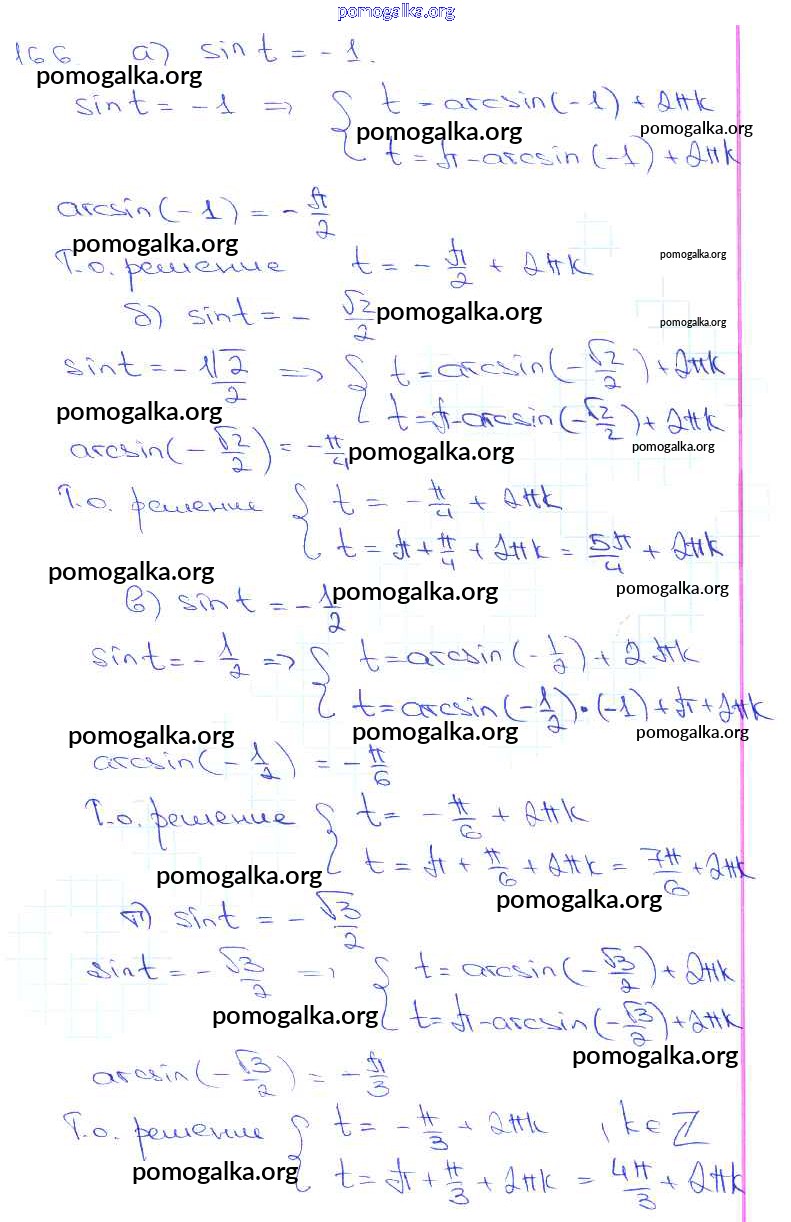 pomogalka.org
166 а) sin t = - 1.
pomogalka.org
sin t = - 1 => { t = arcsin(-1) + 2πk
pomogalka.org pomogalka.org
t = π - arcsin(-1) + 2πk
arcsin(-1) = - π/2
pomogalka.org pomogalka.org
Т.о. решение t = - π/2 + 2πk
б) sin t = - √2/2
pomogalka.org pomogalka.org
sin t = - √2/2 => { t = arcsin(- √2/2) + 2πk
t = π - arcsin(- √2/2) + 2πk
pomogalka.org
arcsin(- √2/2) = - π/4
pomogalka.org pomogalka.org
Т.о. решение { t = - π/4 + 2πk
t = π + π/4 + 2πk = 5π/4 + 2πk
pomogalka.org
в) sin t = - 1/2
pomogalka.org pomogalka.org
sin t = - 1/2 => { t = arcsin(- 1/2) + 2πk
t = arcsin(- 1/2) · (-1) + π + 2πk
pomogalka.org pomogalka.org pomogalka.org
arcsin(- 1/2) = - π/6
Т.о. решение { t = - π/6 + 2πk
t = π + π/6 + 2πk = 7π/6 + 2πk
pomogalka.org
pomogalka.org
г) sin t = - √3/2
sin t = - √3/2 => { t = arcsin(- √3/2) + 2πk
t = π - arcsin(- √3/2) + 2πk
pomogalka.org
pomogalka.org
arcsin(- √3/2) = - π/3
Т.о. решение { t = - π/3 + 2πk , k ∈ Z
t = π + π/3 + 2πk = 4π/3 + 2πk
pomogalka.org